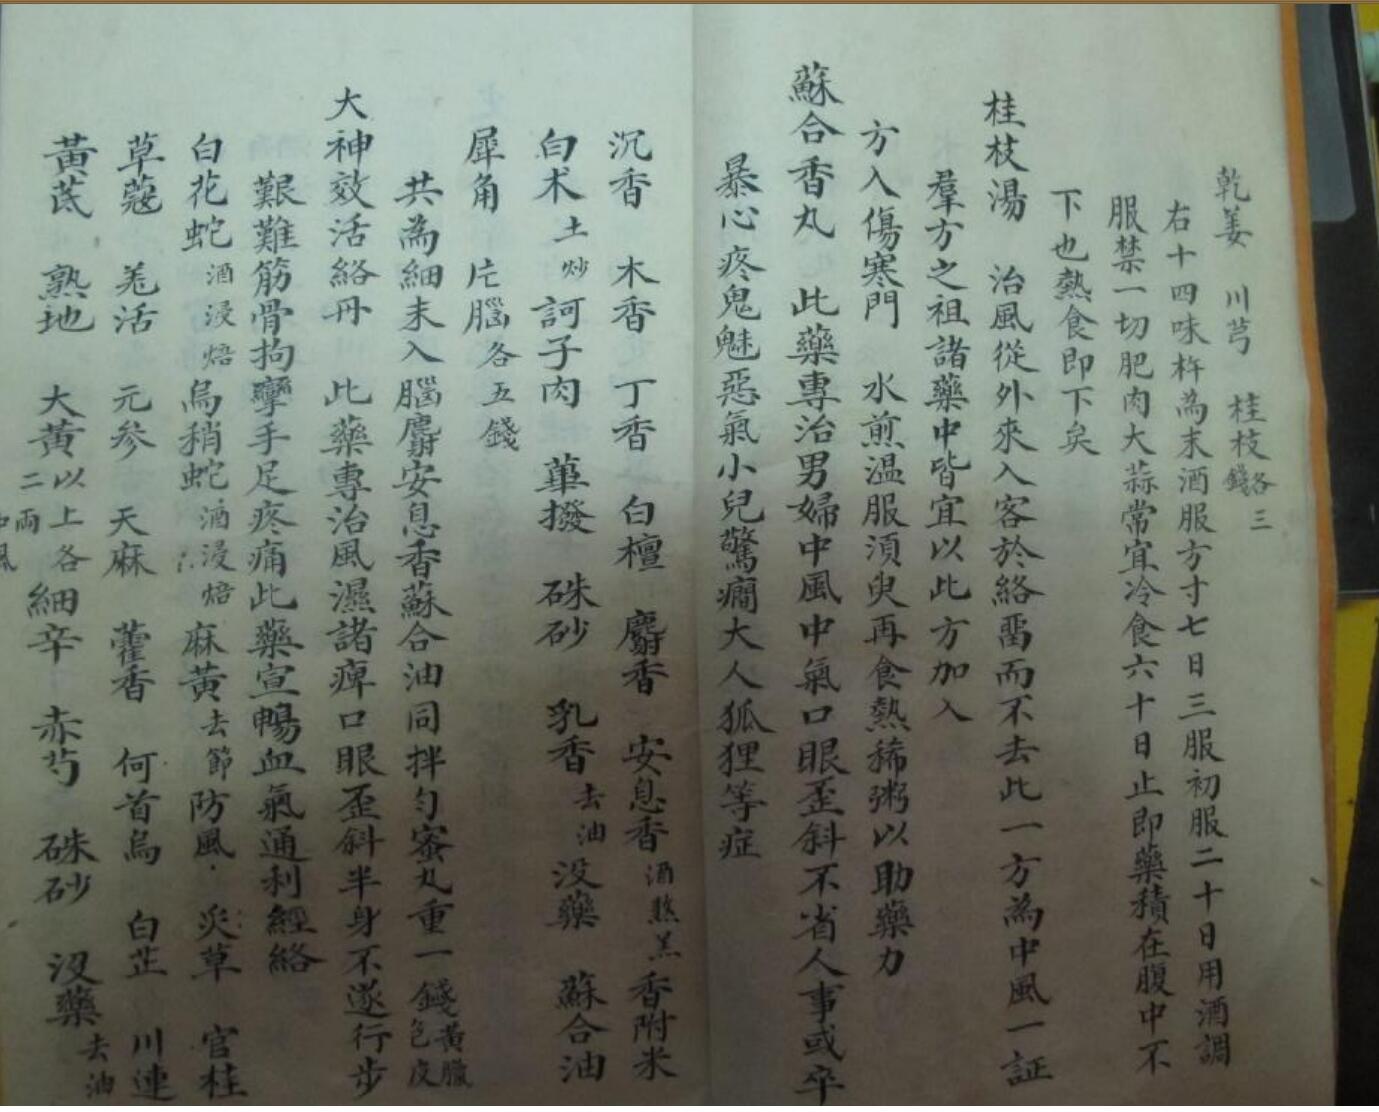 乾姜　川芎　桂枝各三錢
右十四味杵為末酒服方寸七日三服初服二十日用酒調
服禁一切肥肉大蒜常宜冷食六十日止即藥積在腹中不
下也熱食即下矣
桂枝湯　治風從外來入客於絡畱而不去此一方為中風一証
羣方之祖諸藥中皆宜以此方加入
方入傷寒門　水煎温服須臾再食熱稀粥以助藥力
蘇合香丸　此藥專治男婦中風中氣口眼歪斜不省人事或卒
暴心疼鬼魅惡氣小兒驚癇大人狐狸等症
沉香　木香　丁香　白檀　麝香　安息香酒熬羔　香附米
白术土炒　訶子肉　蓽撥　硃砂　乳香去油　没藥　蘇合油
犀角　片腦各五錢
共為細末入腦麝安息香蘇合油同拌匀蜜丸重一錢黃臘包皮
大神效活絡丹　此藥專治風濕諸痺口眼歪斜半身不遂行步
艱難筋骨拘攣手足疼痛此藥宣暢血氣通利經絡
白花蛇酒浸焙　烏稍蛇酒浸焙　麻黃去節　防風　炙草　官桂
草蔻　羌活　元参　天麻　藿香　何首烏　白芷　川連
黃芪　熟地　大黃以上各二兩　細辛　赤芍　硃砂　没藥去油